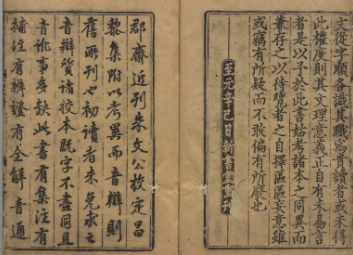 文從字順各識其職為貴讀者或未得
此權度則其文理意義正自有未易言
者是以予於此書姑考諸本之同異而
兼存之以待覽者之自擇區區妄意雖
或竊有所疑而不敢偏有所廢也
至元辛巳日新書堂重刊
郡齋近刊朱文公校定昌
黎集附以考異而音辯則
舊所刊也初讀者未免求之
音辯質諸校本既字不盡同且
音訛事多缺此書有集注有
補注有辯證有全解音通